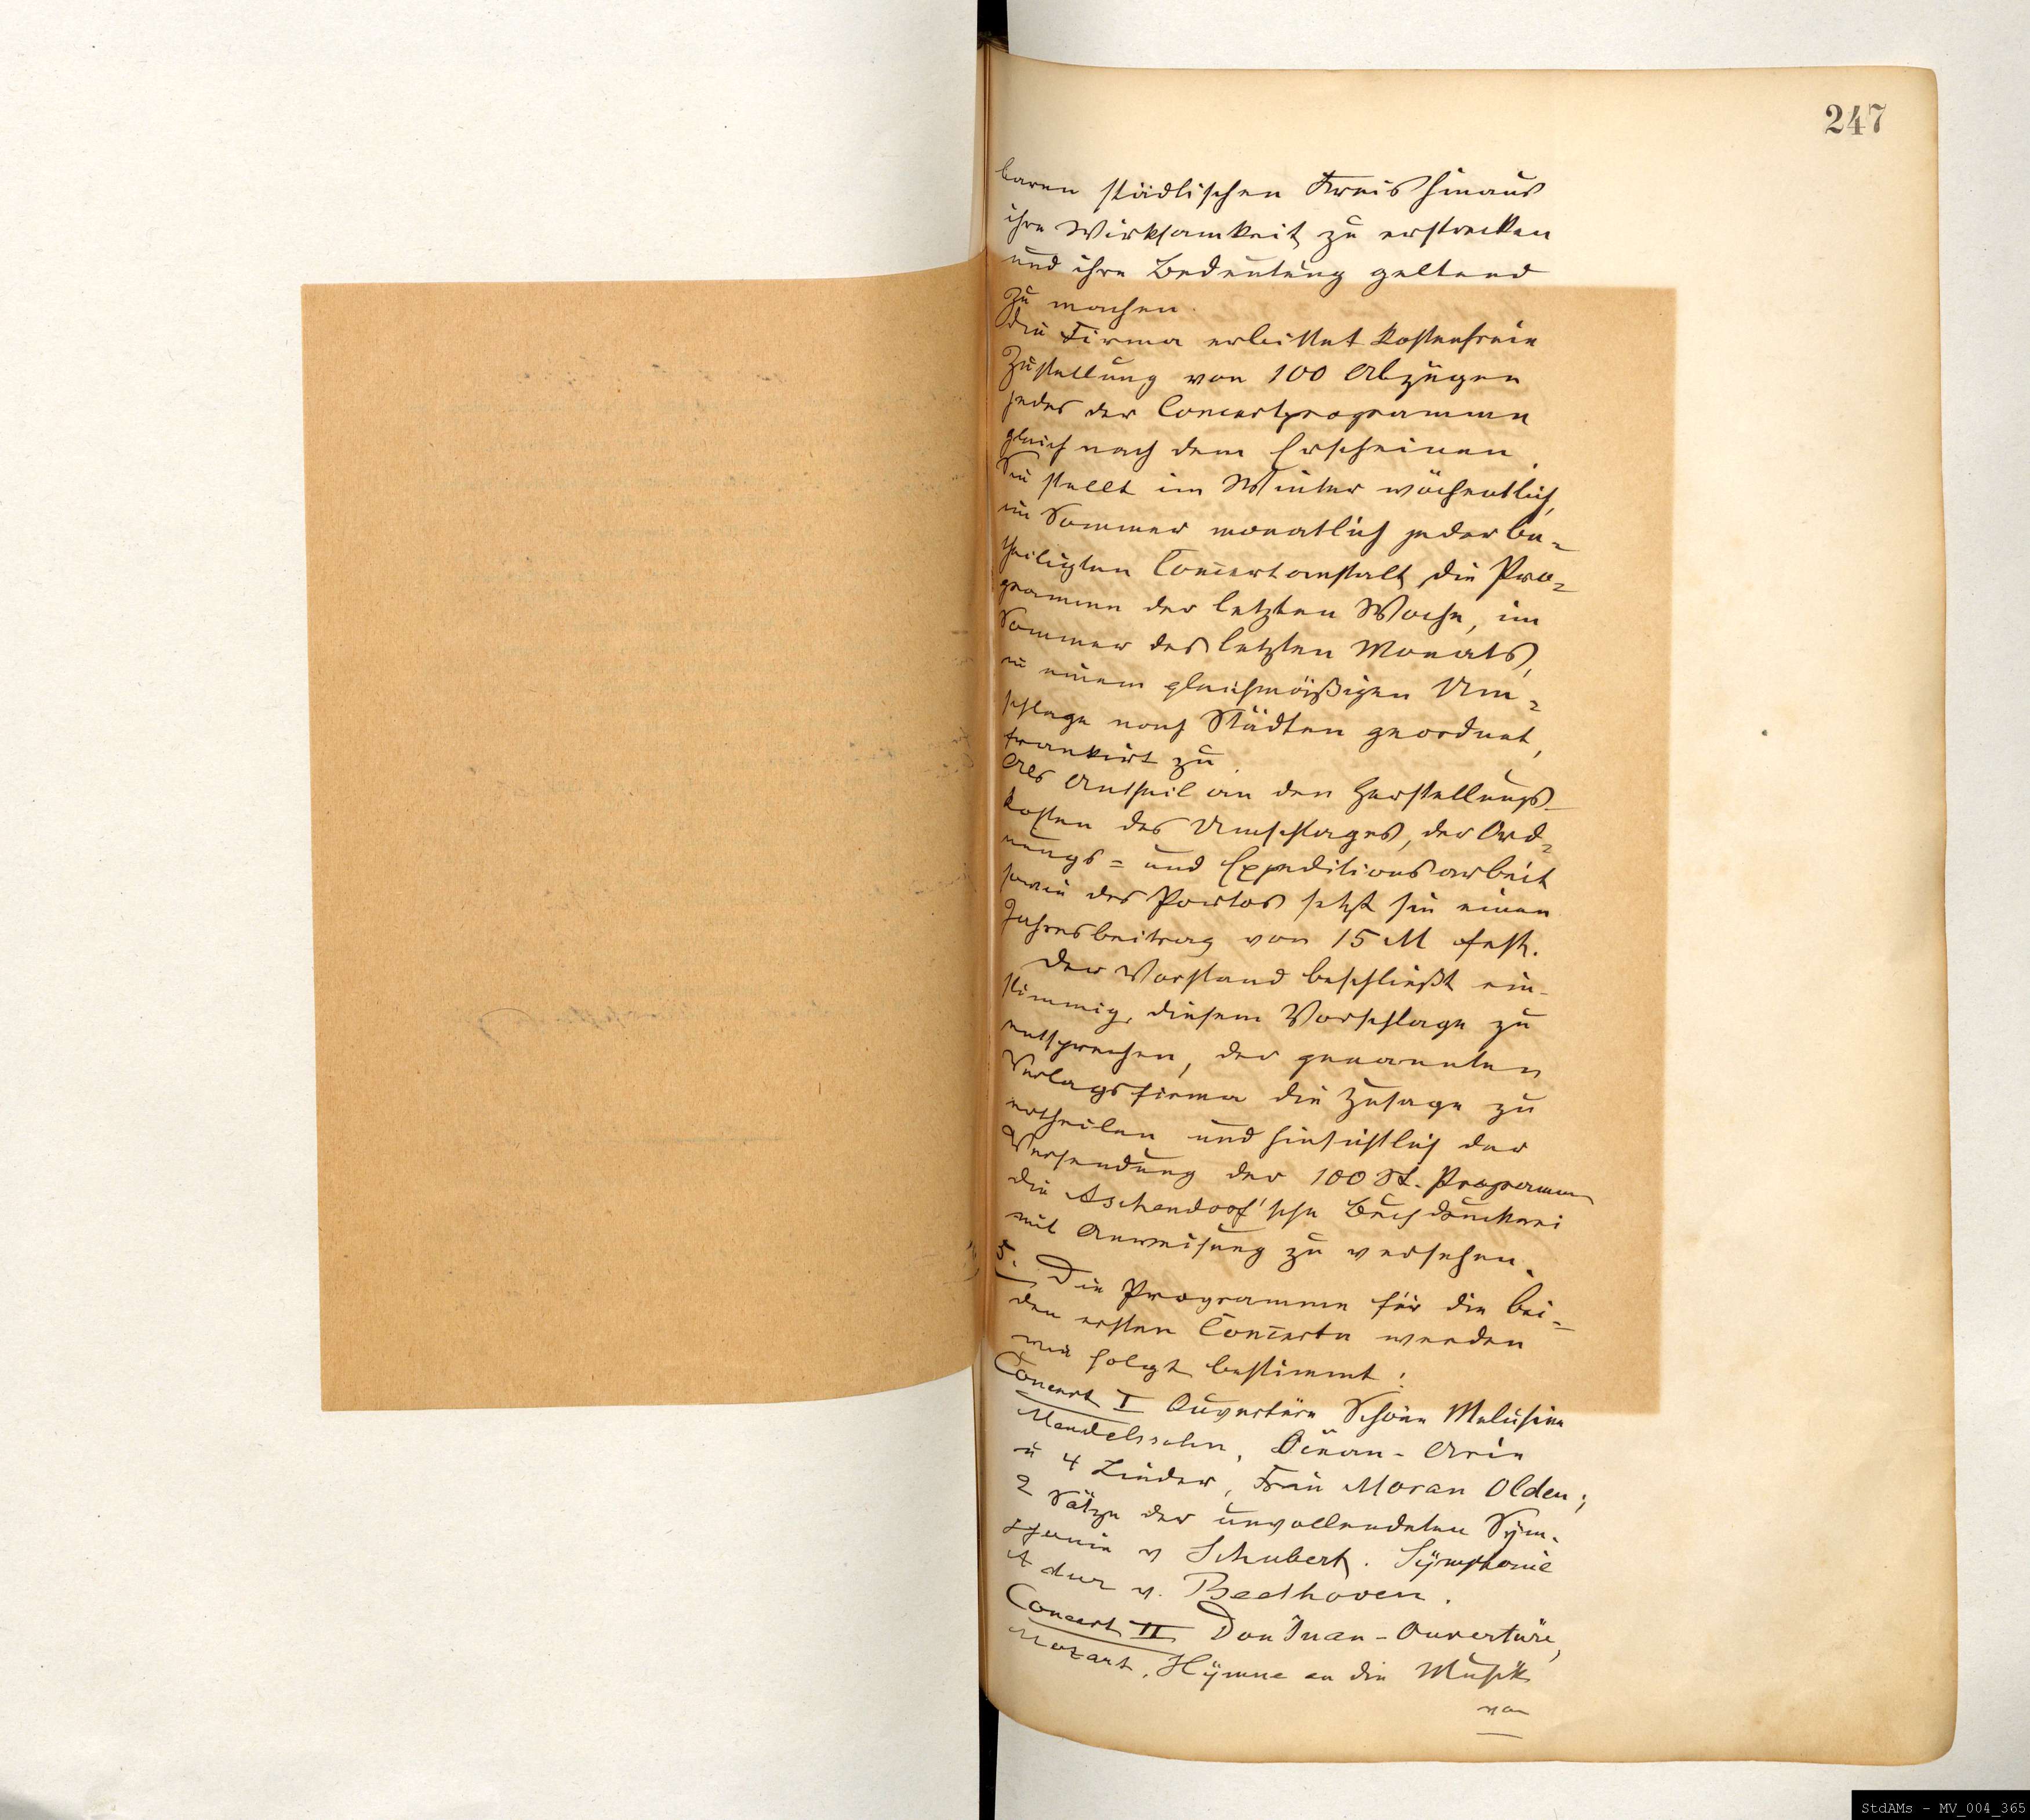 247
baren städtischen Kreis hinaus
ihre Wirksamkeit zu erstrecken
und ihre Bedeutung geltend
zu machen.
Die Firma erbittet kostenfreie
Zustellung von 100 Abzügen
jedes der Concertprogramme
gleich nach dem Erscheinen.
Sie stellt im Winter wöchentlich,
im Sommer monatlich jeder be=
theiligten Concertanstalt die Pro=
gramme der letzten Woche, im
Sommer des letzten Monats,
in einem gleichmäßigen Um=
schlage nach Städten geordnet,
frankirt zu.
Als Antheil an den Herstellungs-
kosten des Umschlages, der Ord=
nungs= und Expeditionsarbeit
sowie des Portos setzt sie einen
Jahresbeitrag von 15 M fest.
Der Vorstand beschließt ein-
stimmig, diesem Vorschlage zu
entsprechen, der genannten
Verlagsfirma die Zusage zu
ertheilen und hinsichtlich der
Versendung der 100 St. Programme
die Aschendorf'sche Buchdruckerei
mit Anweisung zu versehen.
5. Die Programme für die bei=
den ersten Concerte werden
wie folgt bestimmt:
Concert I Ouvertüre Schöne Melusine
Mendelssohn, Arie
u 4 Lieder, Frau Moran Olden;
2 Sätze der unvollendeten Sym-
phonie v Schubert. Symphonie
A dur v. Beethoven.
Concert II Don Juan-Ouvertüre,
Mozart, Hymne an die Musik
von
StdAMs - MV_004_365